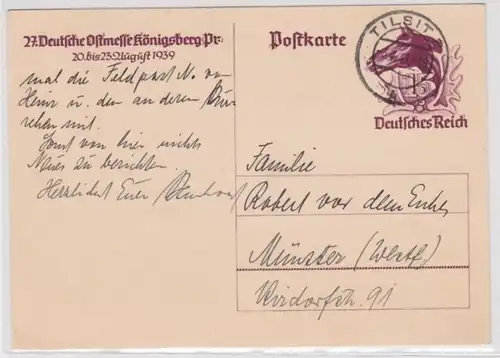 27. Deutsche Ostmesse Königsberg-Pr.
20. bis 23. August 1939
Postkarte
TILSIT
Deutsches Reich
mal die Feldpost N. von
Heinz u. den anderen
mit.
Sonst von hier nichts
Neues zu berichten
Herzlichst Euer
Familie
Robert vor dem
Münster (Westf)
91